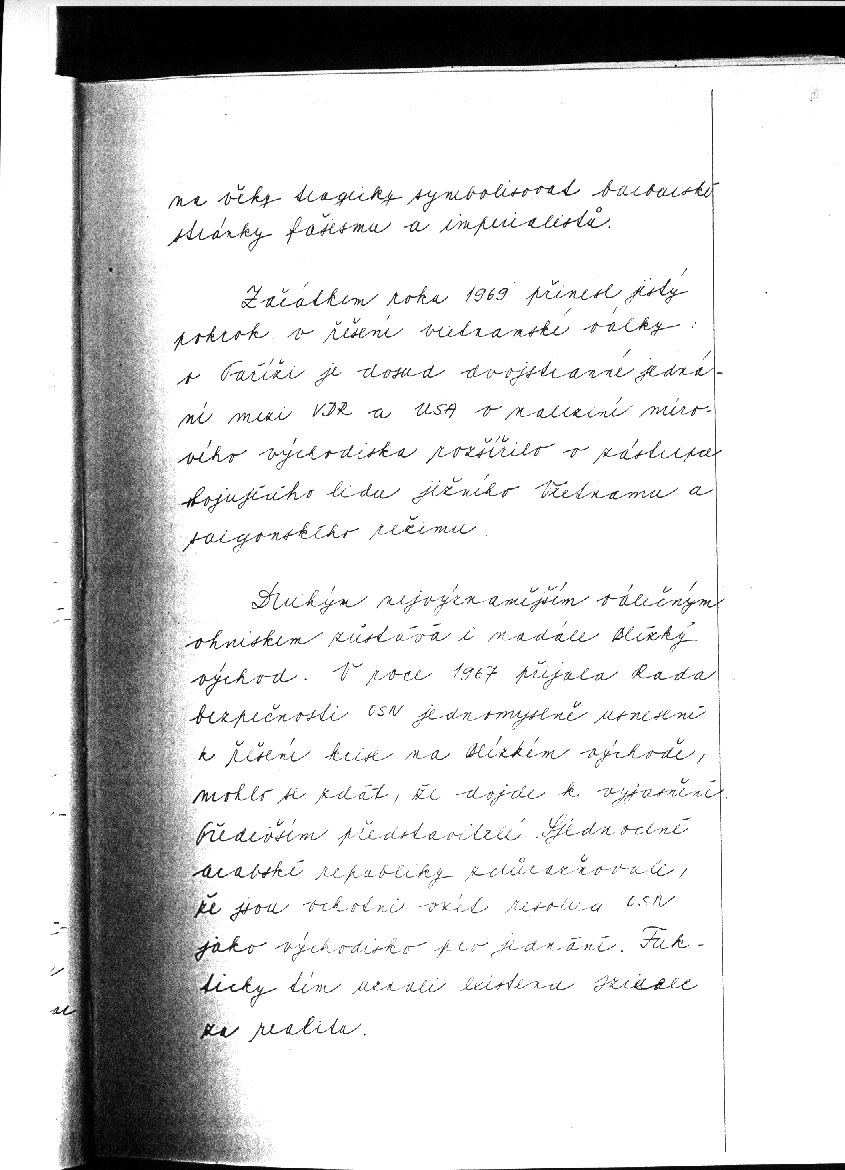 na věky tragicky symbolisovat barbarské
stránky fašismu a imperialistů.
Začátkem roku 1969 přinesl jistý
pokrok v řešení vietnamské války:
v Paříži je dosud dvojstranné jedná-
ní mezi VDR a USA o nalezení míro-
vého východiska rozšířilo o zástupce
bojujícího lidu jižního Vietnamu a
saigonského režimu.
Druhým nejvýznamějším válečným
ohniskem zůstává i nadále Blízký
východ. V roce 1967 přijala Rada
bezpečnosti OSN jednomyslně usnesení
k řešení krise na Blízkém východě,
mohlo se zdát, že dojde k vyjasnění.
Především představitelé Sjednocené
arabské republiky zdůrazňovali,
že jsou ochotni vzít resoluci OSN
jako východisko pro jednání. Fak-
ticky tím uznali existenci Izraele
za realitu.